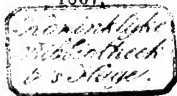 1807.
Koninklyke
Bibliotheek
te s'Hage.